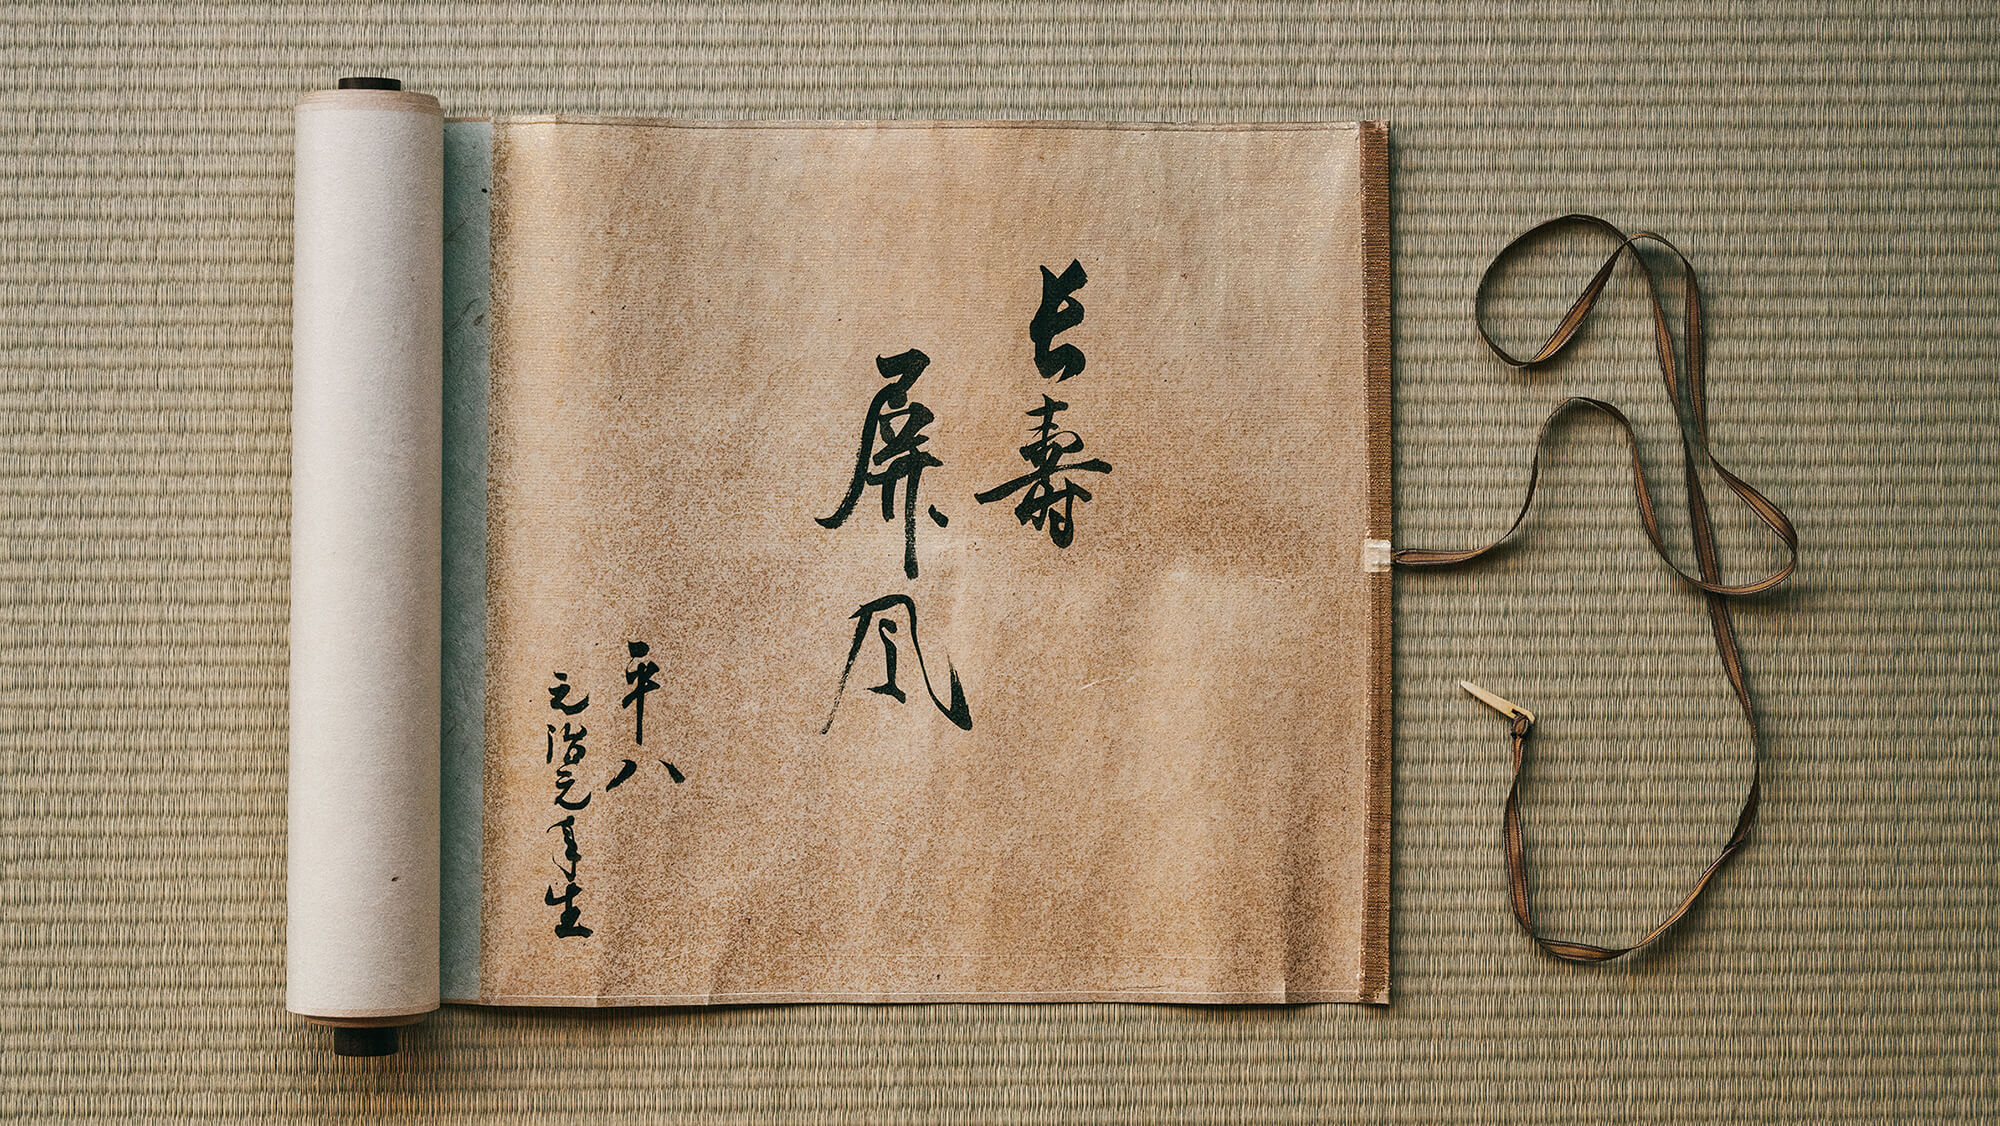 長壽
屏風
平八
元治元年生